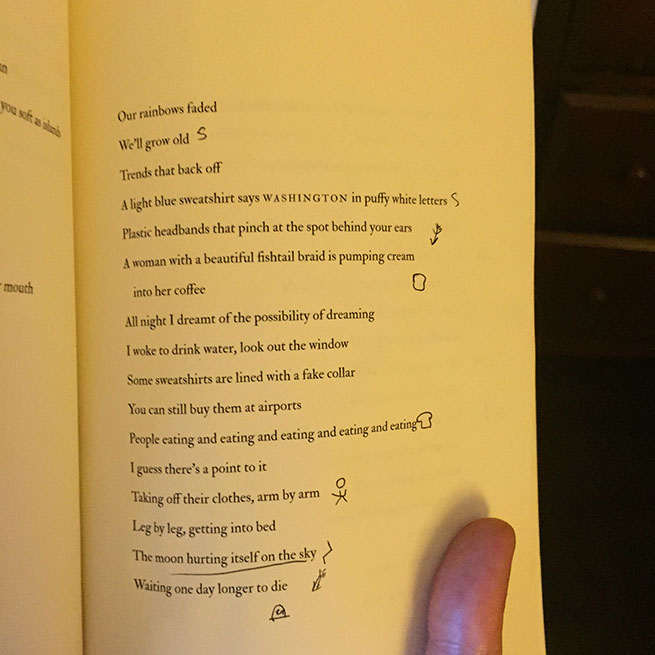 an
you soft as islands
mouth
Our rainbows faded
We'll grow old
Trends that back off
A light blue sweatshirt says WASHINGTON in puffy white letters
Plastic headbands that pinch at the spot behind your ears
A woman with a beautiful fishtail braid is pumping cream
into her coffee
All night I dreamt of the possibility of dreaming
I woke to drink water, look out the window
Some sweatshirts are lined with a fake collar
You can still buy them at airports
People eating and eating and eating and eating and eating
I guess there's a point to it
Taking off their clothes, arm by arm
Leg by leg, getting into bed
The moon hurting itself on the sky
Waiting one day longer to die